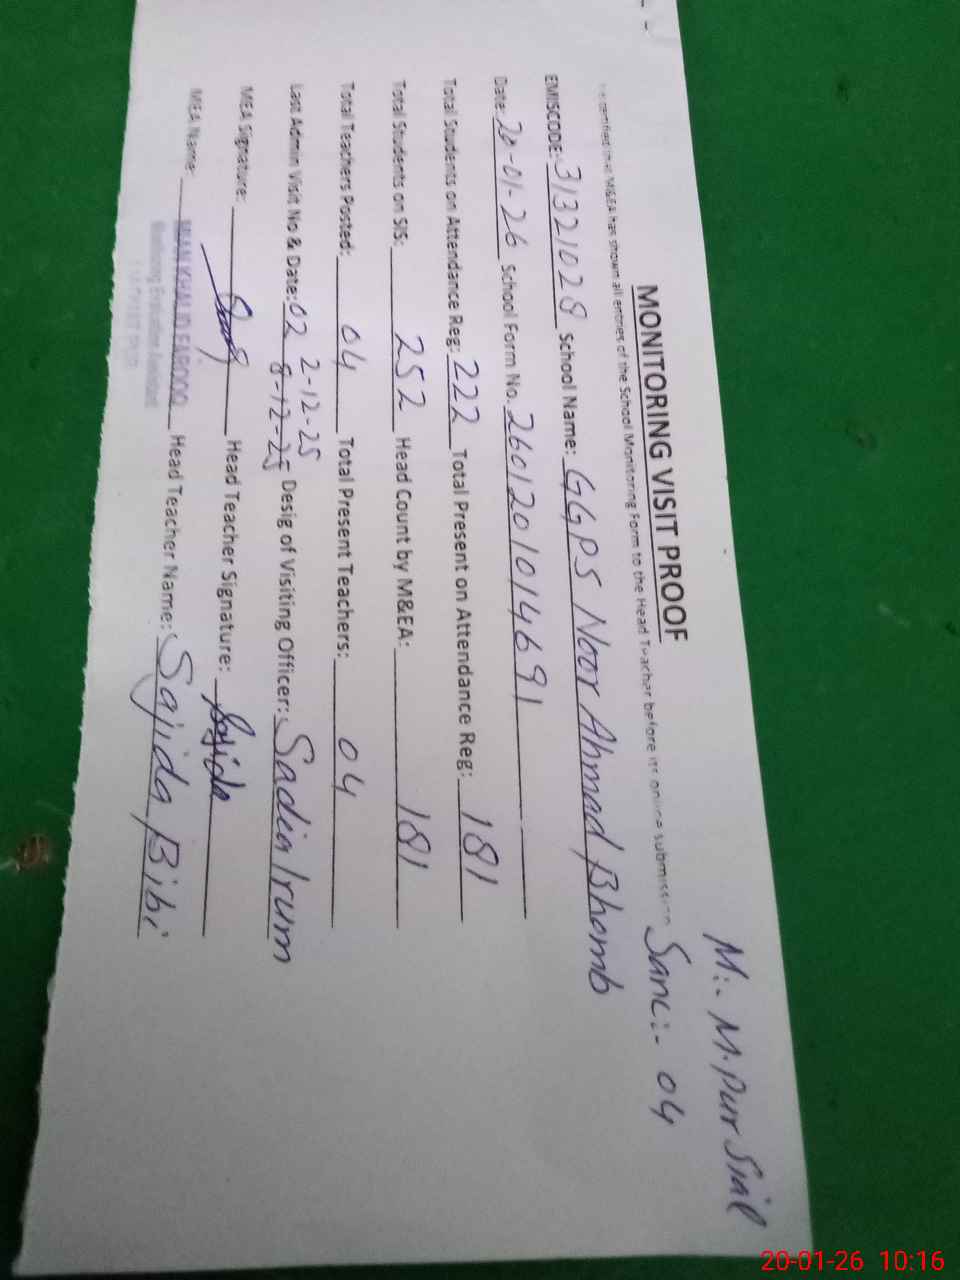 M:- M.Pur Sial
MONITORING VISIT PROOF
Sanc:- 04
that M&EA has shown all entries of the School Monitoring Form to the Head Teacher before its online submission
EMISCODE: 31321028 School Name: GGPS Noor Ahmad Bhomb
Date: 20-01-26 School Form No. 2601201014691
Total Students on Attendance Reg: 222 Total Present on Attendance Reg: 181
Total Students on SIS: 252 Head Count by M&EA: 181
Total Teachers Posted: 04 Total Present Teachers: 04
2-12-25
Last Admin Visit No & Date: 02 8-12-25 Desig of Visiting Officer: Sadia Irum
MEA Signature: Head Teacher Signature: Sajida
MEA Name: MIAN KHALID FAROOQ Head Teacher Name: Sajida Bibi
Monitoring Evaluation Assistant
20-01-26 10:16